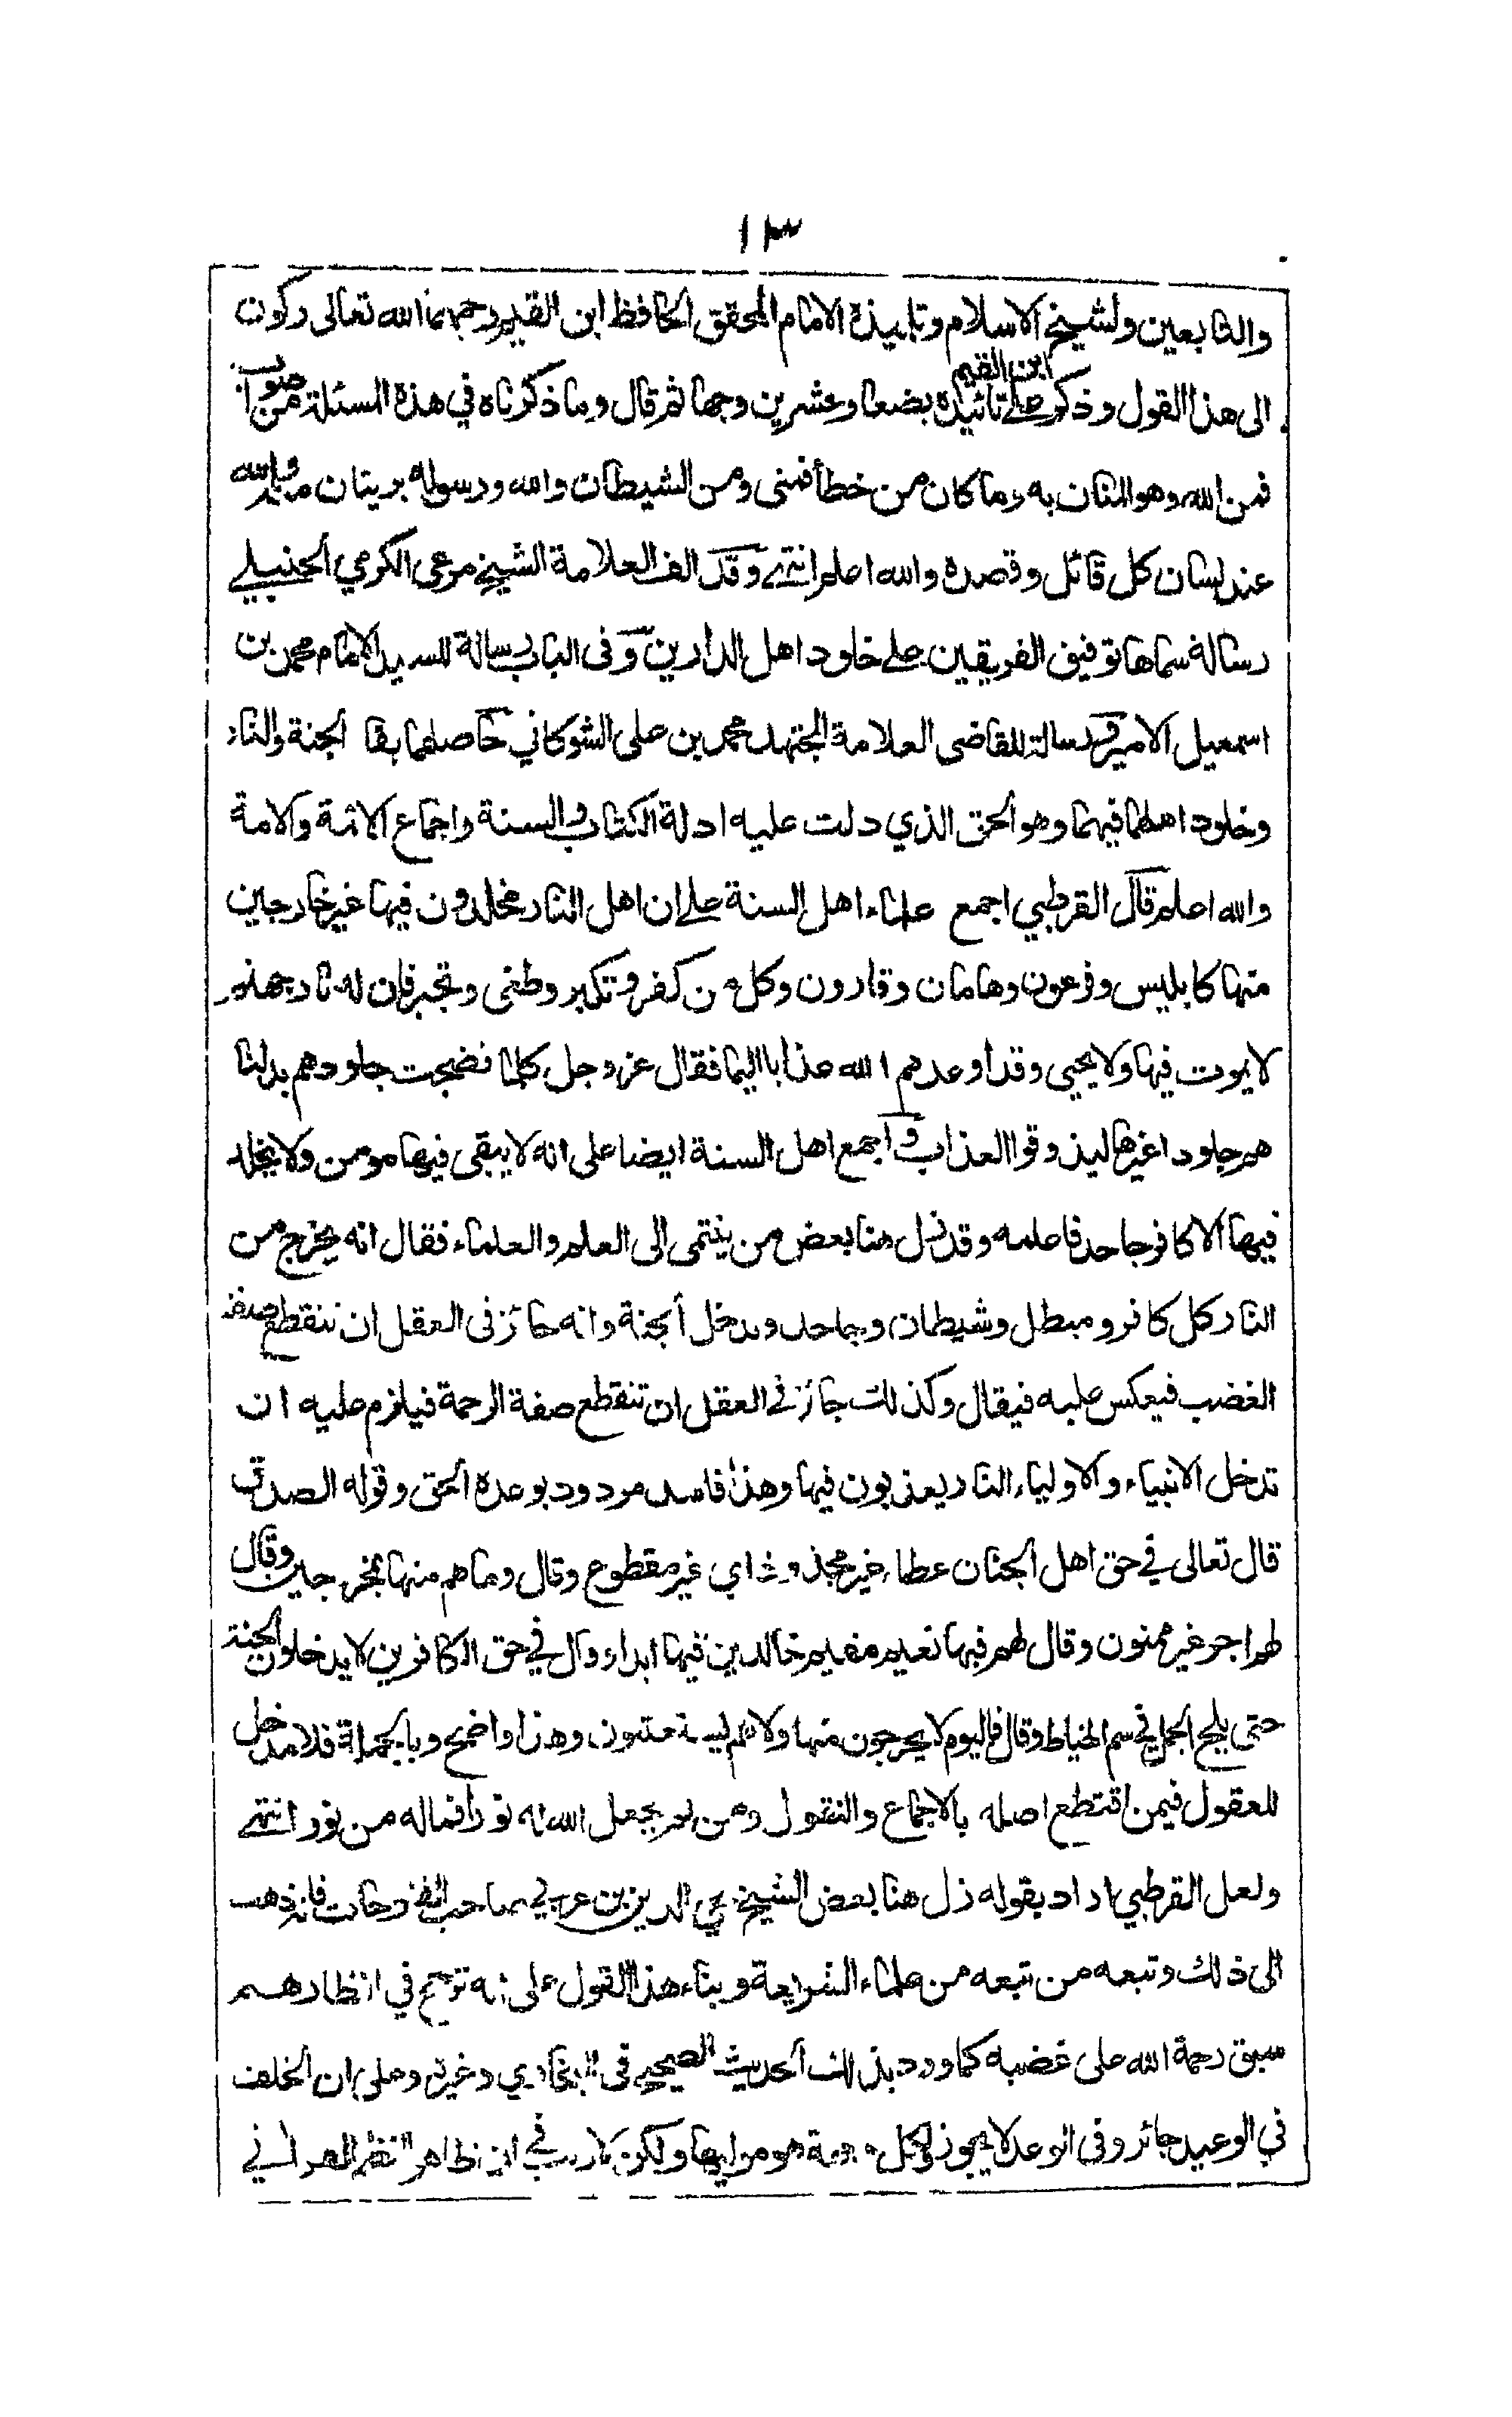 ١٣
والتابعين ولشيخ الاسلام وتلميذه الامام المحقق الحافظ ابن القيم رحمهما الله تعالى ركون
ابن القيم
الى هذا القول وذكر على تائيده بضعا وعشرين وجها ثم قال وما ذكرناه في هذه المسئلة من صواب
فمن الله وهو المنان به وما كان من خطأ فمنى ومن الشيطان والله ورسوله بريئان منه والله
عند لسان كل قائل وقصده والله اعلم انتهى وقد الف العلامة الشيخ مرعي الكرمي الحنبلي
رسالة سماها توفيق الفريقين على خلود اهل الدارين وفى الباب رسالة للسيد الامام محمد بن
اسمعيل الامير ورسالة للقاضى العلامة المجتهد محمد بن على الشوكاني حاصلهما بقا الجنة والنار
وخلود اهلهما فيهما وهو الحق الذي دلت عليه ادلة الكتاب والسنة واجماع الائمة والامة
والله اعلم قال القرطبي اجمع علماء اهل السنة على ان اهل النار مخلدون فيها غير خارجين
منها كابليس وفرعون وهامان وقارون وكل من كفر وتكبر وطغى وتجبر فان له نار جهنم
لا يموت فيها ولا يحيى وقد اوعدهم الله عذابا اليما فقال عز وجل كلما نضجت جلودهم بدلنا
هم جلودا غيرها ليذوقوا العذاب واجمع اهل السنة ايضا على انه لا يبقى فيها مومن ولا يخلد
فيها الا كافر جاحد فاعلمه وقد زل هنا بعض من ينتمى الى العلم والعلماء فقال انه يخرج من
النار كل كافر ومبطل وشيطان وجاحد ويدخل الجنة وانه جائز فى العقل ان تنقطع صفة
الغضب فيعكس عليه فيقال وكذلك جائز في العقل ان تنقطع صفة الرحمة فيلزم عليه ان
تدخل الانبياء والاولياء النار يعذبون فيها وهذا فاسد مردود بوعده الحق وقوله الصدق
قال تعالى في حق اهل الجنان عطاء غير مجذوذ اي غير مقطوع وقال وما هم منها بمخرجين وقال
لهم اجر غير ممنون وقال لهم فيها نعيم مقيم خالدين فيها ابدا وقال في حق الكافرين لا يدخلون الجنة
حتى يلج الجمل في سم الخياط وقال فاليوم لا يخرجون منها ولا هم يستعتبون وهذا واضح وبالجملة فلا مدخل
للعقول فيمن اقتطع اصله بالاجماع والنقول ومن لم يجعل الله له نورا فما له من نور انتهى
ولعل القرطبي اراد بقوله زل هنا بعض الشيخ محي الدين بن عربي صاحب الفتوحات فانه ذهب
الى ذلك وتبعه من تبعه من علماء الشريعة وبناء هذا القول على انه ترجح في انظارهم
سبق رحمة الله على غضبه كما ورد بذلك الحديث الصحيح فى البخاري وغيره وعلى ان الخلف
في الوعيد جائز وفى الوعد لا يجوز ولكل وجهة هو موليها ولكن لا ريب في ان ظاهر النظم القرآني